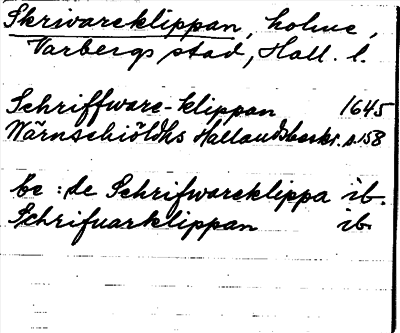 Skrivareklippan, holme,
Varbergs stad, Hall. l.
Schriffware-klippan 1645
Wärnschiöldhs Hallandsbeskr. s. 158
be : de Schrifwareklippa ib.
Schrifuarklippan ib.